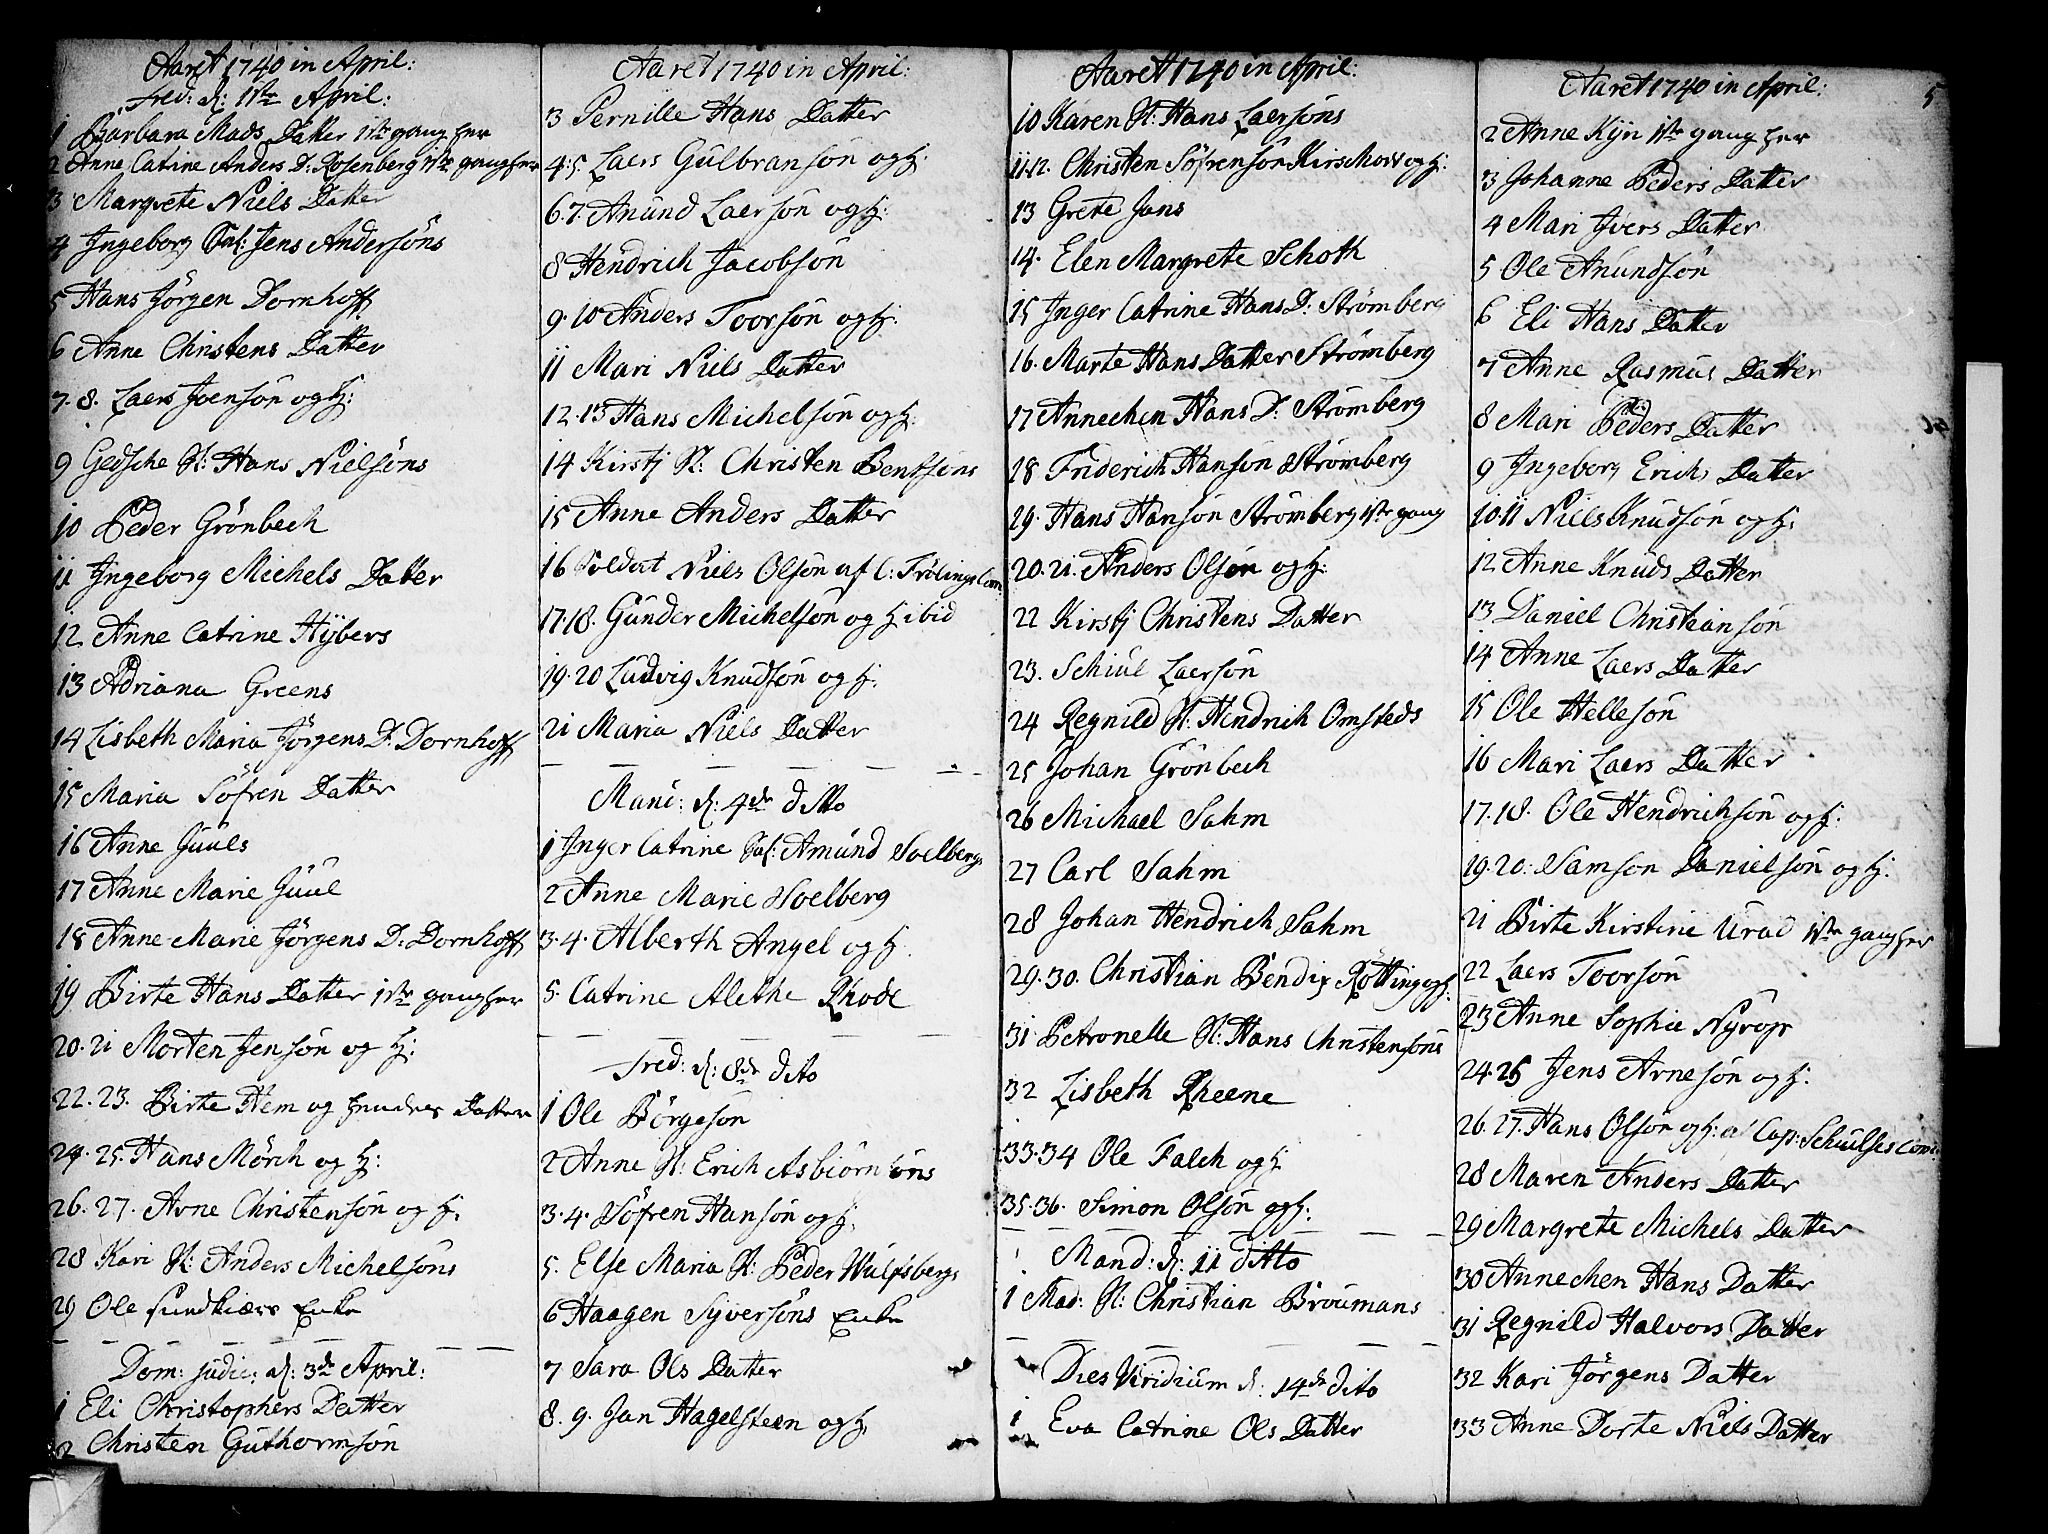 Aaret 1740 in April:
Fred: d: 1ste April:
1 Barbara Mads Datter 1ste gang her
2 Anne Catrine Anders D: Rosenberg 1ste gang her
3 Margrete Niels Datter
4 Ingeborg Sal: Jens Andersöns
5 Hans Jörgen Dornhoff
6 Anne Christens Datter
7. 8. Laers Joensön og H:
9 Gedsche Sl: Hans Nielsöns
10 Peder Grönbech
11 Ingeborg Michels Datter
12 Anne Catrine Hÿbers
13 Adriana Greens
14 Lisbeth Maria Jörgens D: Dornhoff
15 Maria Söfren Datter
16 Anne Juuls
17 Anne Marie Juul
18 Anne Marie Jörgens D: Dornhoff
19 Birte Hans Datter 1ste gang her
20. 21 Morten Jensön og H:
22. 23. Birte Hem og hendes Datter
24. 25. Hans Mörch og H:
26. 27. Arne Christensön og H:
28 Kari Sl: Anders Michelsöns
29 Ole Sundkiærs Enke
Dom: judic: d: 3de April:
1 Eli Christophers Datter
2 Christen Guthormsön
Aaret 1740 in April:
3 Pernille Hans Datter
4. 5. Laers Gulbransön og H:
6. 7. Anund Laersön og H:
8 Hendrich Jacobsön
9. 10 Anders Toorsön og H:
11 Mari Niels Datter
12. 13 Hans Michelsön og H:
14 Kirstj Sl: Christen Bentsöns
15 Anne Anders Datter
16 Soldat Niels Olsön af C: Frölings Com:
17. 18. Gunder Michelsön og H ibid
19. 20 Ludvig Knudsön og H:
21 Maria Niels Datter
Mand: d: 4de ditto
1 Inger Catrine Sal: Amund Soelbergs
2 Anne Marie Soelberg
3. 4. Alberth Angel og H.
5. Catrine Alethe Rhode
Fred: d: 8de dito
1 Ole Börgesön
2 Anne Sl: Erich Asbiörnsöns
3. 4. Söfren Hansön og H:
5. Else Maria Sl: Peder Wulfsbergs
6 Haagen Syversöns Enke
7 Sara Ols Datter
8. 9. Jan Hagelsteen og H:
Aaret 1740 in April:
10 Karen Sl: Hans Laersöns
11. 12. Christen Söfrensön Kirs og H:
13 Grete Jans
14. Elen Margrete Schoth
15 Inger Catrine Hans D: Strömberg
16. Marte Hans Datter Strömberg
17 Annechen Hans D: Strömberg
18 Friderich Hansön Strömberg
19. Hans Hansön Strömberg 1ste gang
20. 21. Anders Olsön og H:
22 Kirstj Christens Datter
23. Schiul Laersön
24 Regnild Sl: Hendrich Omsteds
25 Johan Grönbech
26 Michael Sahm
27 Carl Sahm
28 Johan Hendrich Sahm
29. 30. Christian Bendix Rötting og H.
31 Petronelle Sl: Hans Christensöns
32 Lisbeth Rheene
33. 34 Ole Falch og H
35. 36. Simon Olsön og H:
Mand: d: 11 ditto
1 Mad: Sl: Christian Broumans
Dies Viridium d: 14de dito
1 Eva Catrine Ols Datter
Aaret 1740 in April:
5
2 Anne Kyn 1ste gang her
3 Johanne Peders Datter
4 Mari Ivers Datter
5 Ole Anundsön
6 Eli Hans Datter
7 Anne Rasmus Datter
8 Mari Peders Datter
9 Ingeborg Erichs Datter
10. 11 Niels Knudsön og H:
12 Anne Knuds Datter
13 Daniel Christiansön
14 Anne Laers Datter
15 Ole Hellesön
16 Mari Laers Datter
17. 18. Ole Hendrichsön og H:
19. 20. Samson Danielsön og H:
21 Birte Kirstine Urad 1ste gang her
22 Laers Toorsön
23 Anne Sophie Nyrop
24. 25 Jens Arnesön og H:
26. 27. Hans Olsön og H: a Cap: Schulses Com:
28 Maren Anders Datter
29 Margrete Michels Datter
30 Annechen Hans Datter
31 Regnild Halvors Datter
32 Kari Jörgens Datter
33 Anne Dorte Niels Datter